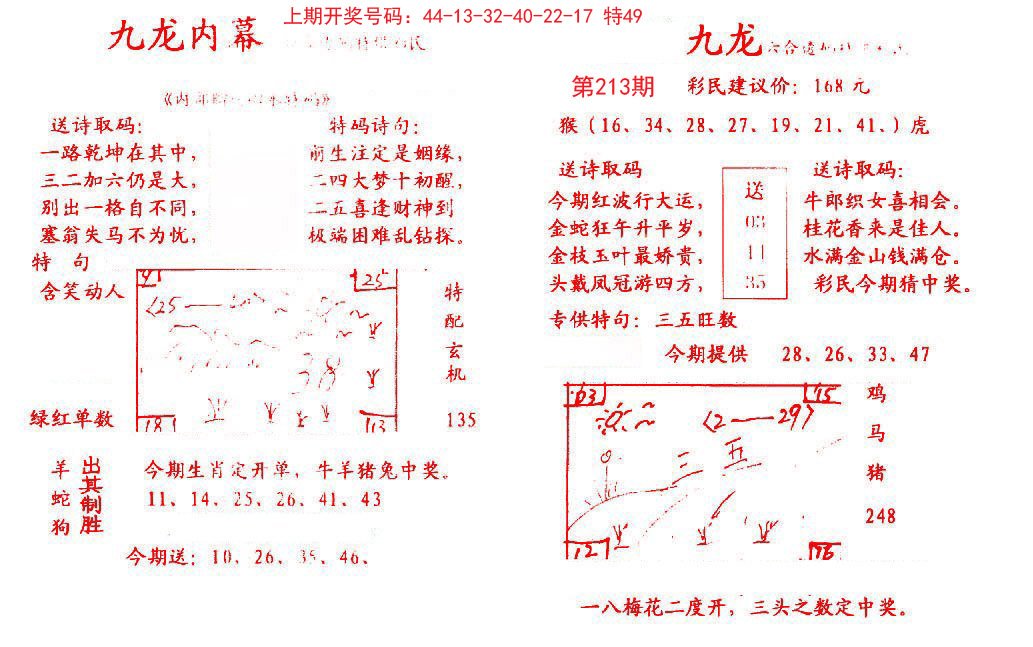 上期开奖号码：44-13-32-40-22-17 特49
九龙内幕
送诗取码：
一路乾坤在其中，
三二加六仍是大，
别出一格自不同，
塞翁失马不为忧，
特码诗句：
前生注定是姻缘，
二四大梦十初醒，
二五喜逢财神到
极端困难乱钻探。
特 句
含笑动人
绿红单数
25
〈25——
38
18
13
特
配
玄
机
135
羊
蛇
狗
出其制胜
今期生肖定开单，牛羊猪兔中奖。
11、14、25、26、41、43
今期送：10、26、35、46、
九龙
第213期
彩民建议价：168 元
猴（16、34、28、27、19、21、41、）虎
送诗取码
今期红波行大运，
金蛇狂午升平岁，
金枝玉叶最娇贵，
头戴凤冠游四方，
送
03
11
35
送诗取码：
牛郎织女喜相会。
桂花香来是佳人。
水满金山钱满仓。
彩民今期猜中奖。
专供特句：三五旺数
今期提供 28、26、33、47
03
15
〈2——29〉
三 五
12
16
鸡
马
猪
248
一八梅花二度开，三头之数定中奖。